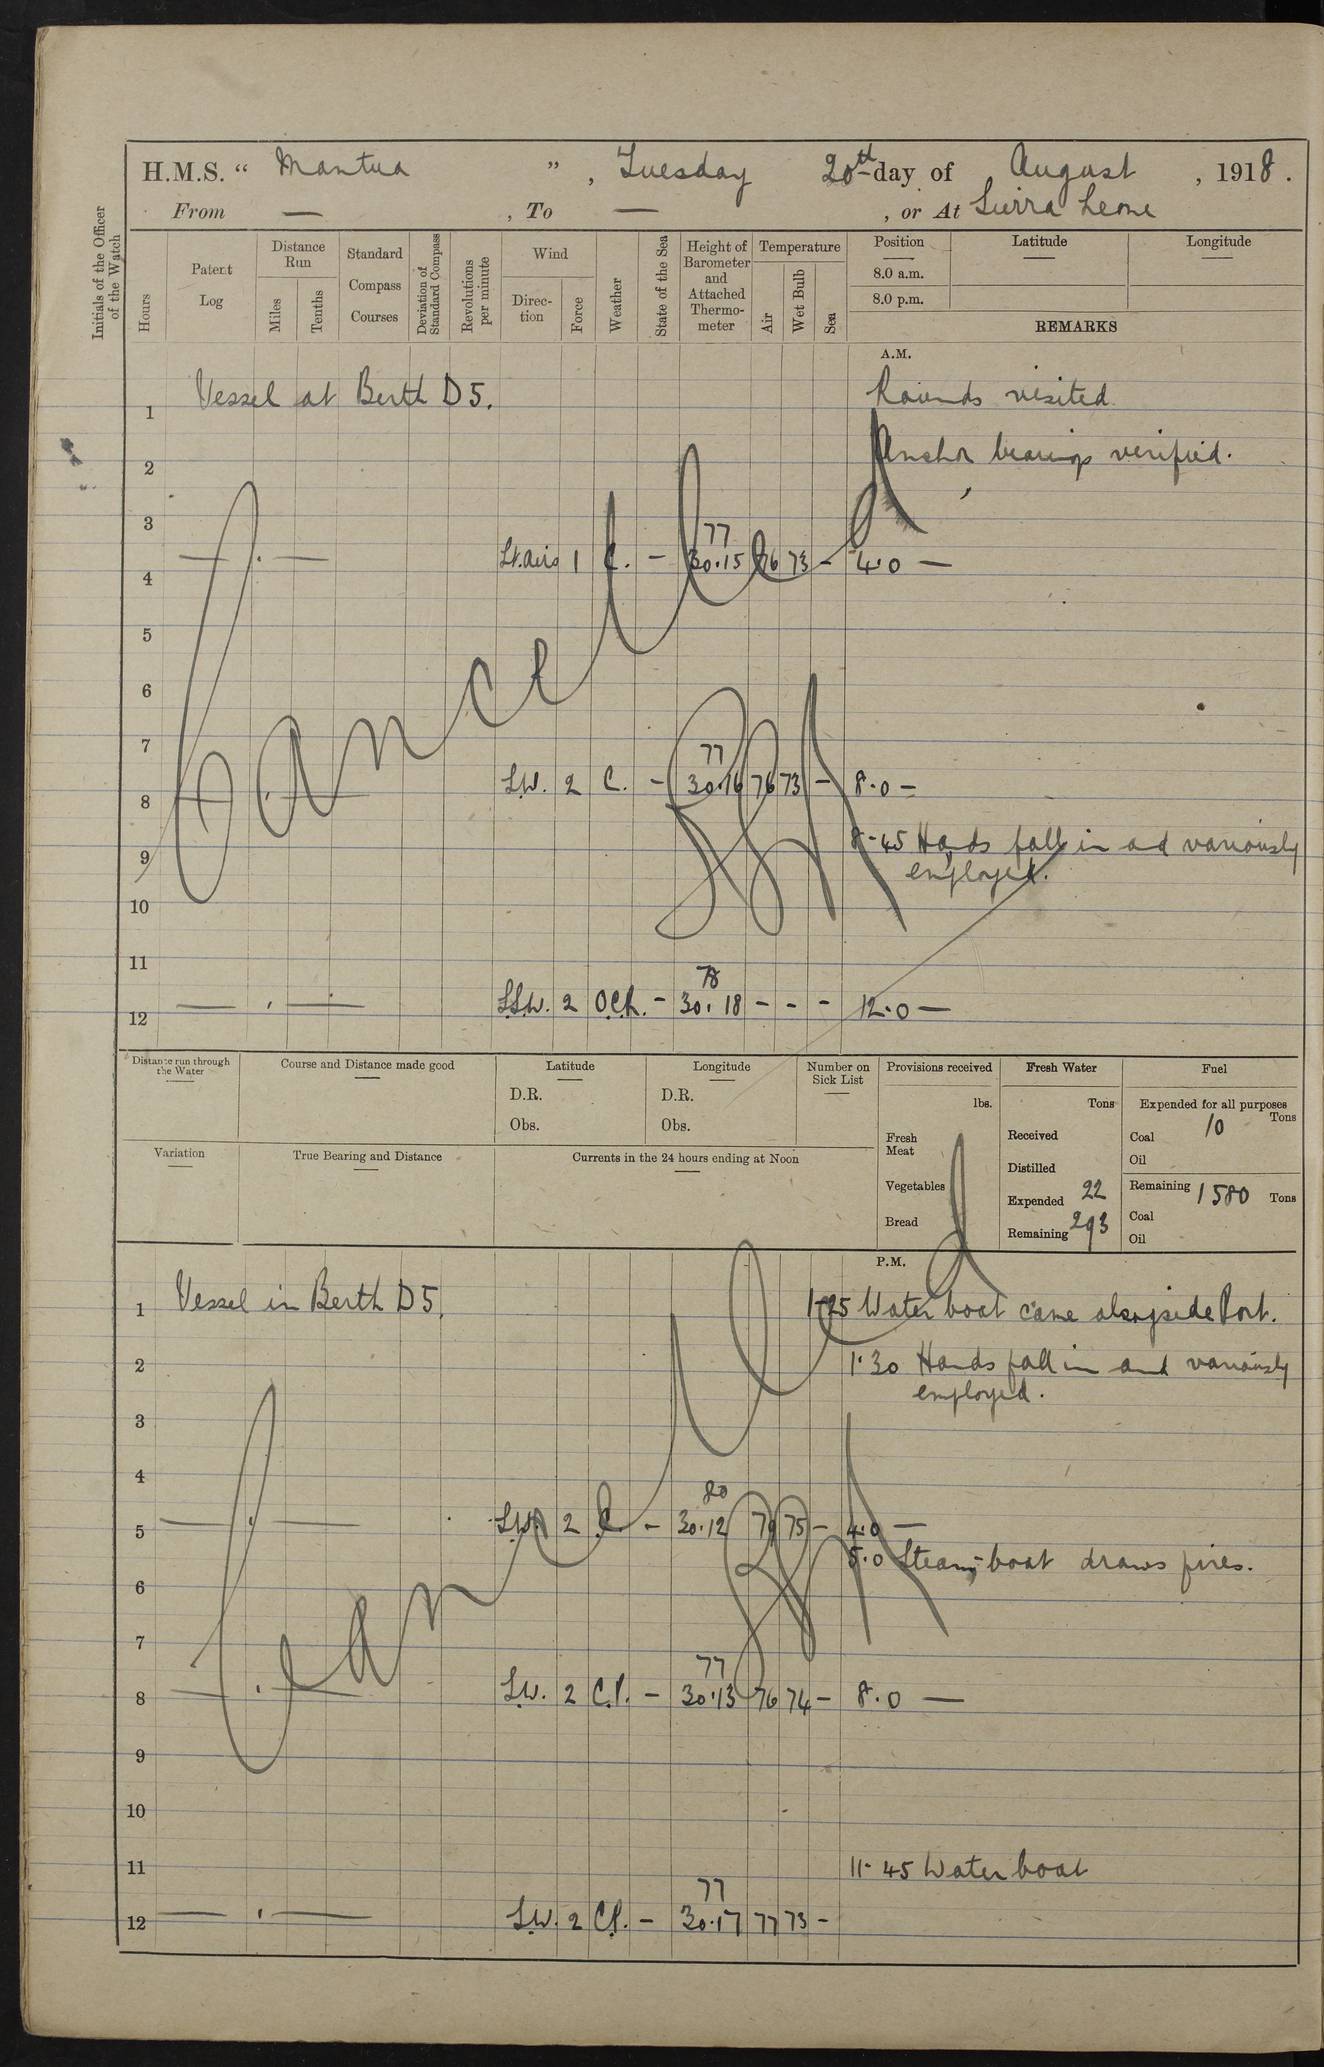 H.M.S. “ Mantua ” , Tuesday 20th day of August , 1918 .
From — , To — , or At Sierra Leone
Initials of the Officer of the Watch
Hours
Patent Log
Distance Run
Miles
Tenths
Standard Compass Courses
Deviation of Standard Compass
Revolutions per minute
Wind
Direction
Force
Weather
State of the Sea
Height of Barometer and Attached Thermometer
Temperature
Air
Wet Bulb
Sea
Position
8.0 a.m.
8.0 p.m.
Latitude
Longitude
REMARKS
A.M.
1 Vessel at Berth D5. Rounds visited
2 Anchor bearings verified.
3 77
4 — . — Lt. airs 1 C. – 30.15 76 73 – 4.0 —
5
6
7 77
8 S.W. 2 C. – 30.16 76 73 – 8.0 –
9 8-45 Hands fall in and variously
employed.
10
11 78
12 — . — S.S.W. 2 – 30.18 – – – 12.0 —
Cancelled
Distance run through the Water
Course and Distance made good
Latitude
D.R.
Obs.
Longitude
D.R.
Obs.
Number on Sick List
Variation
True Bearing and Distance
Currents in the 24 hours ending at Noon
Provisions received
lbs.
Fresh Meat
Vegetables
Bread
Fresh Water
Tons
Received
Distilled
Expended 22
Remaining 293
Fuel
Expended for all purposes
Tons
Coal 10
Oil
Remaining 1580 Tons
Coal
Oil
P.M.
1 Vessel in Berth D5. 1-25 Water boat came alongside Port.
2 1.30 Hands fall in and variously
employed.
3
4 80
5 — . — S.W. 2 C. – 30.12 79 75 – 4.0 —
5.0 Steam-boat draws fires.
6
7 77
8 — . — S.W. 2 C.P. – 30.13 76 74 – 8.0 —
9
10
11 11-45 Water boat
77
12 — . — S.W. 2 C.P. – 30.17 77 73 –
Cancelled